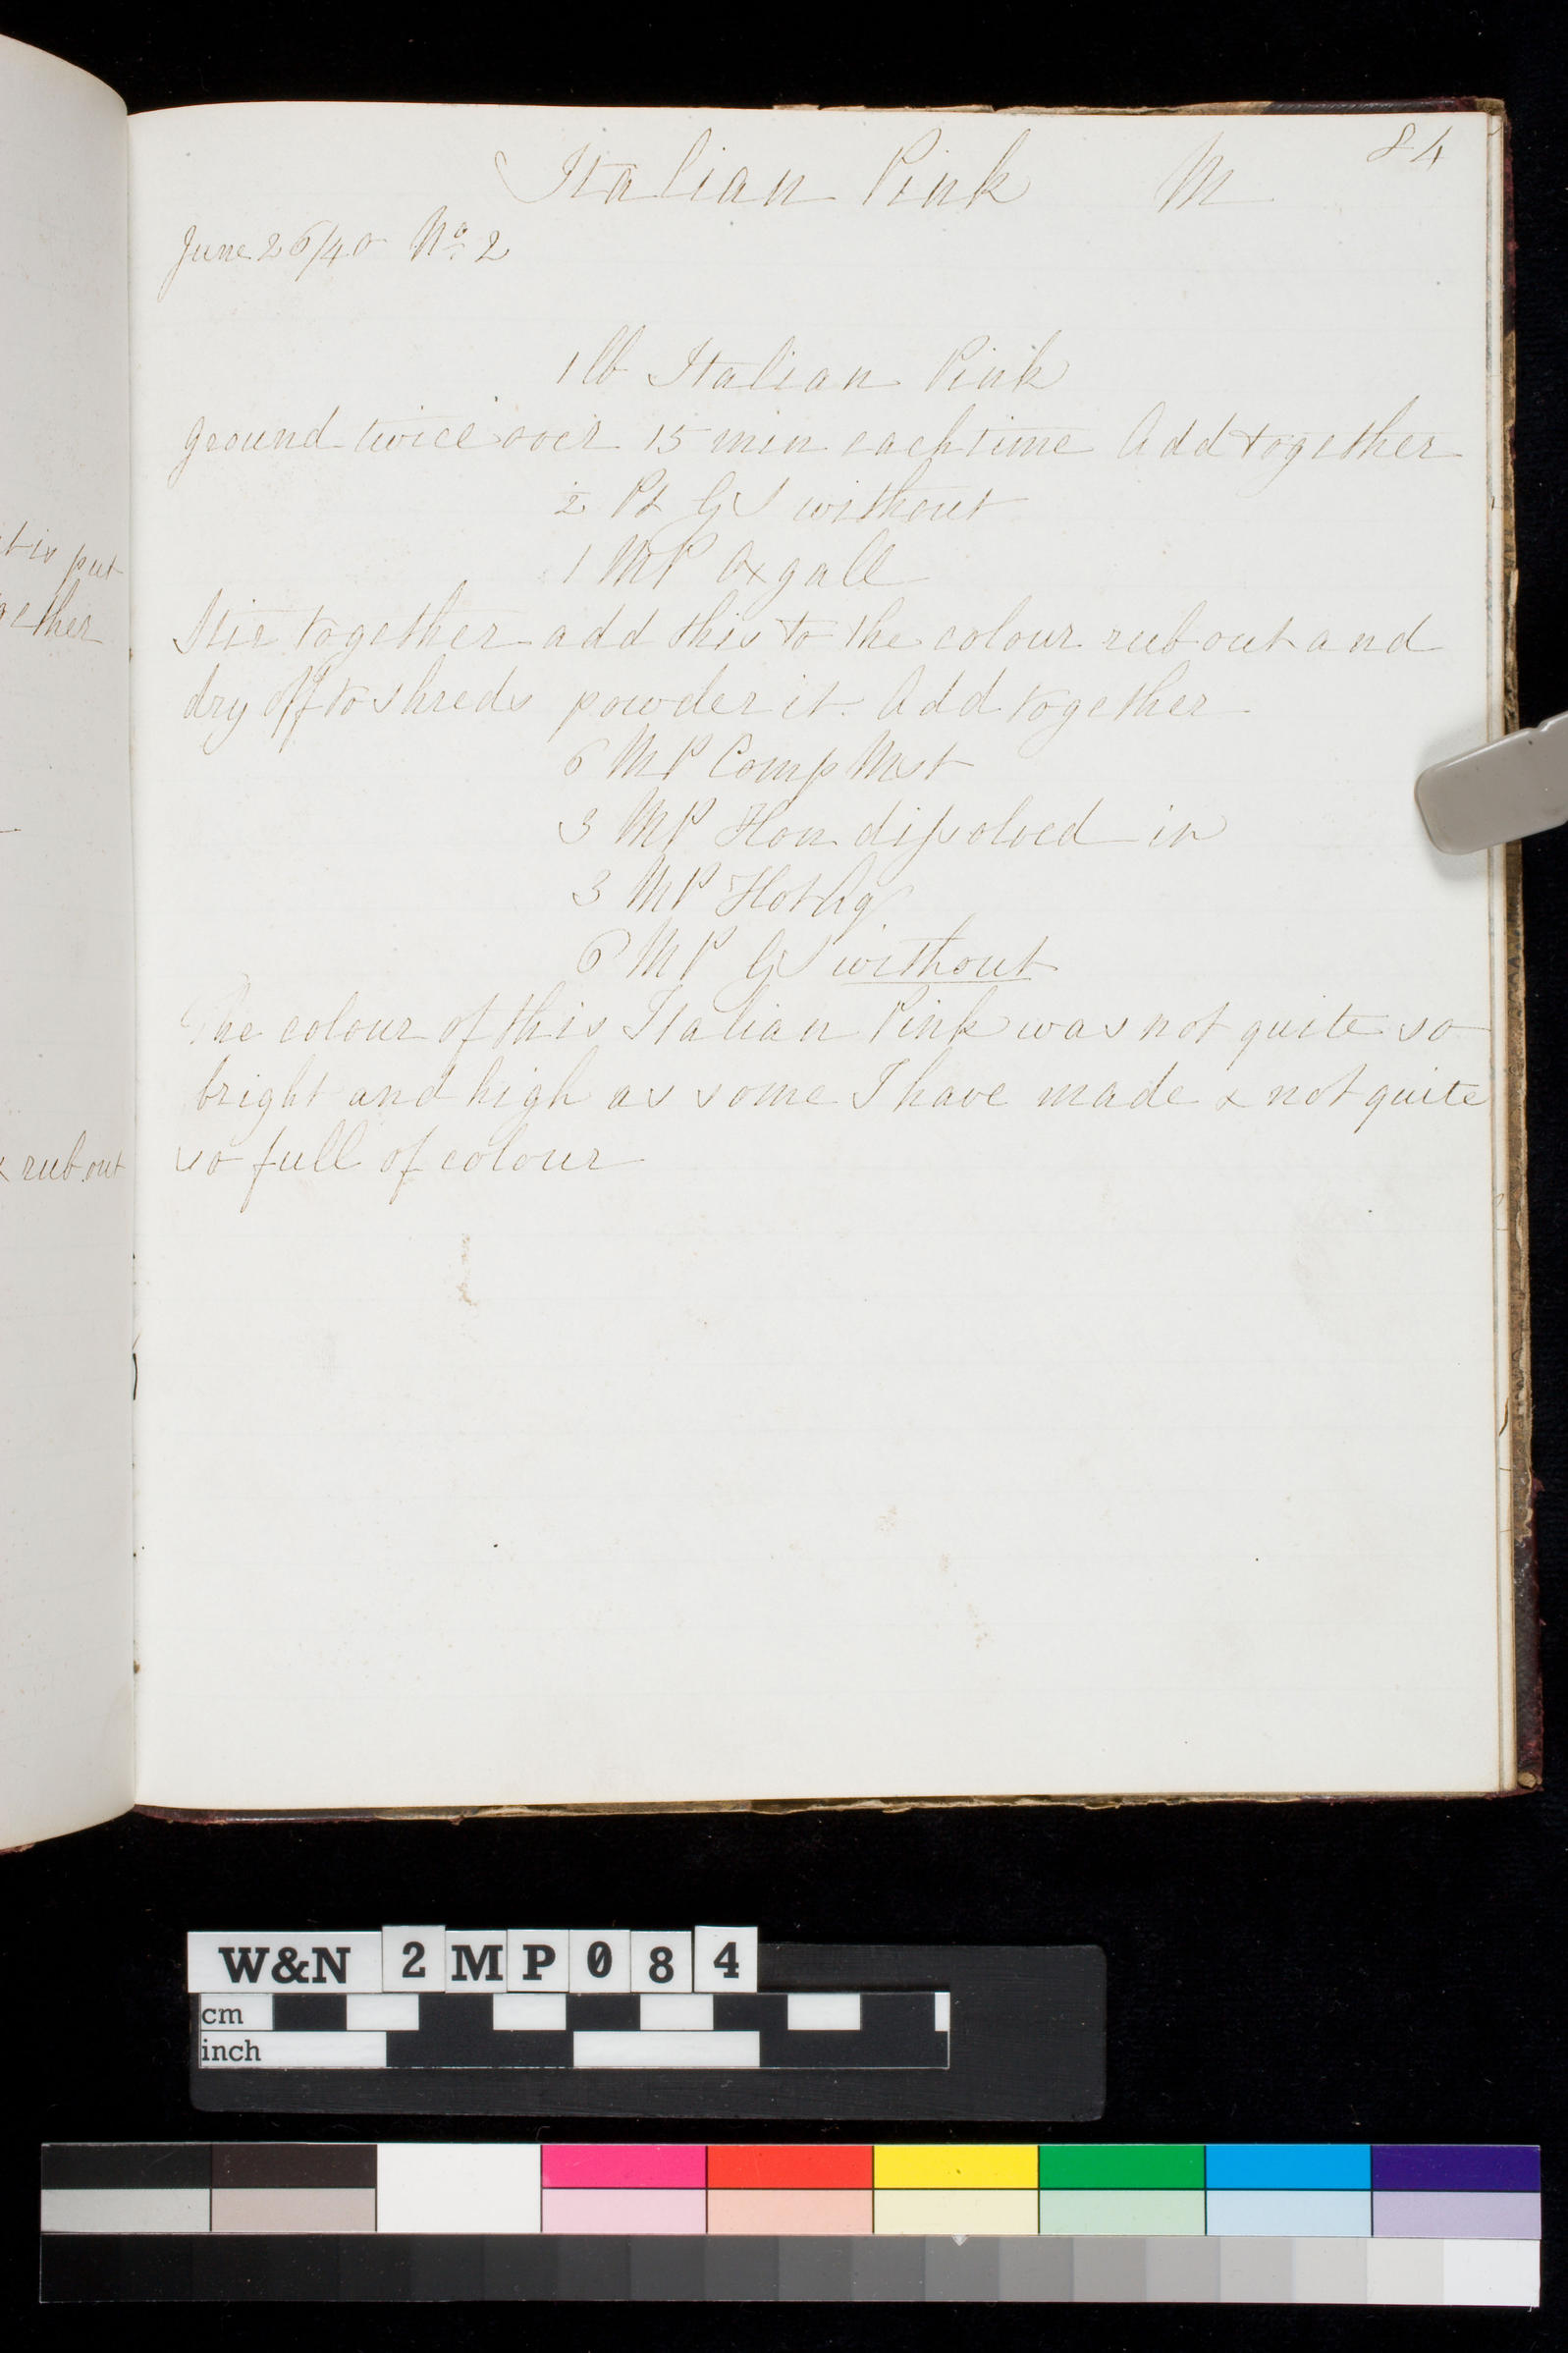 84
Italian Pink M
June 26/40 No. 2
1 lb Italian Pink
ground twice over 15 min each time Add together
2 Pt GS without
1 MP Oxgall
Stir together add this to the colour rub out and
dry off to shreds powder it. Add together
6 MP Comp Mst
3 MP Hon dissolved in
3 MP Hot Aq
6 MP GS without
The colour of this Italian Pink was not quite so
bright and high as some I have made & not quite
so full of colour
t is put
gether
& rub out
W&N 2MP084
cm
inch